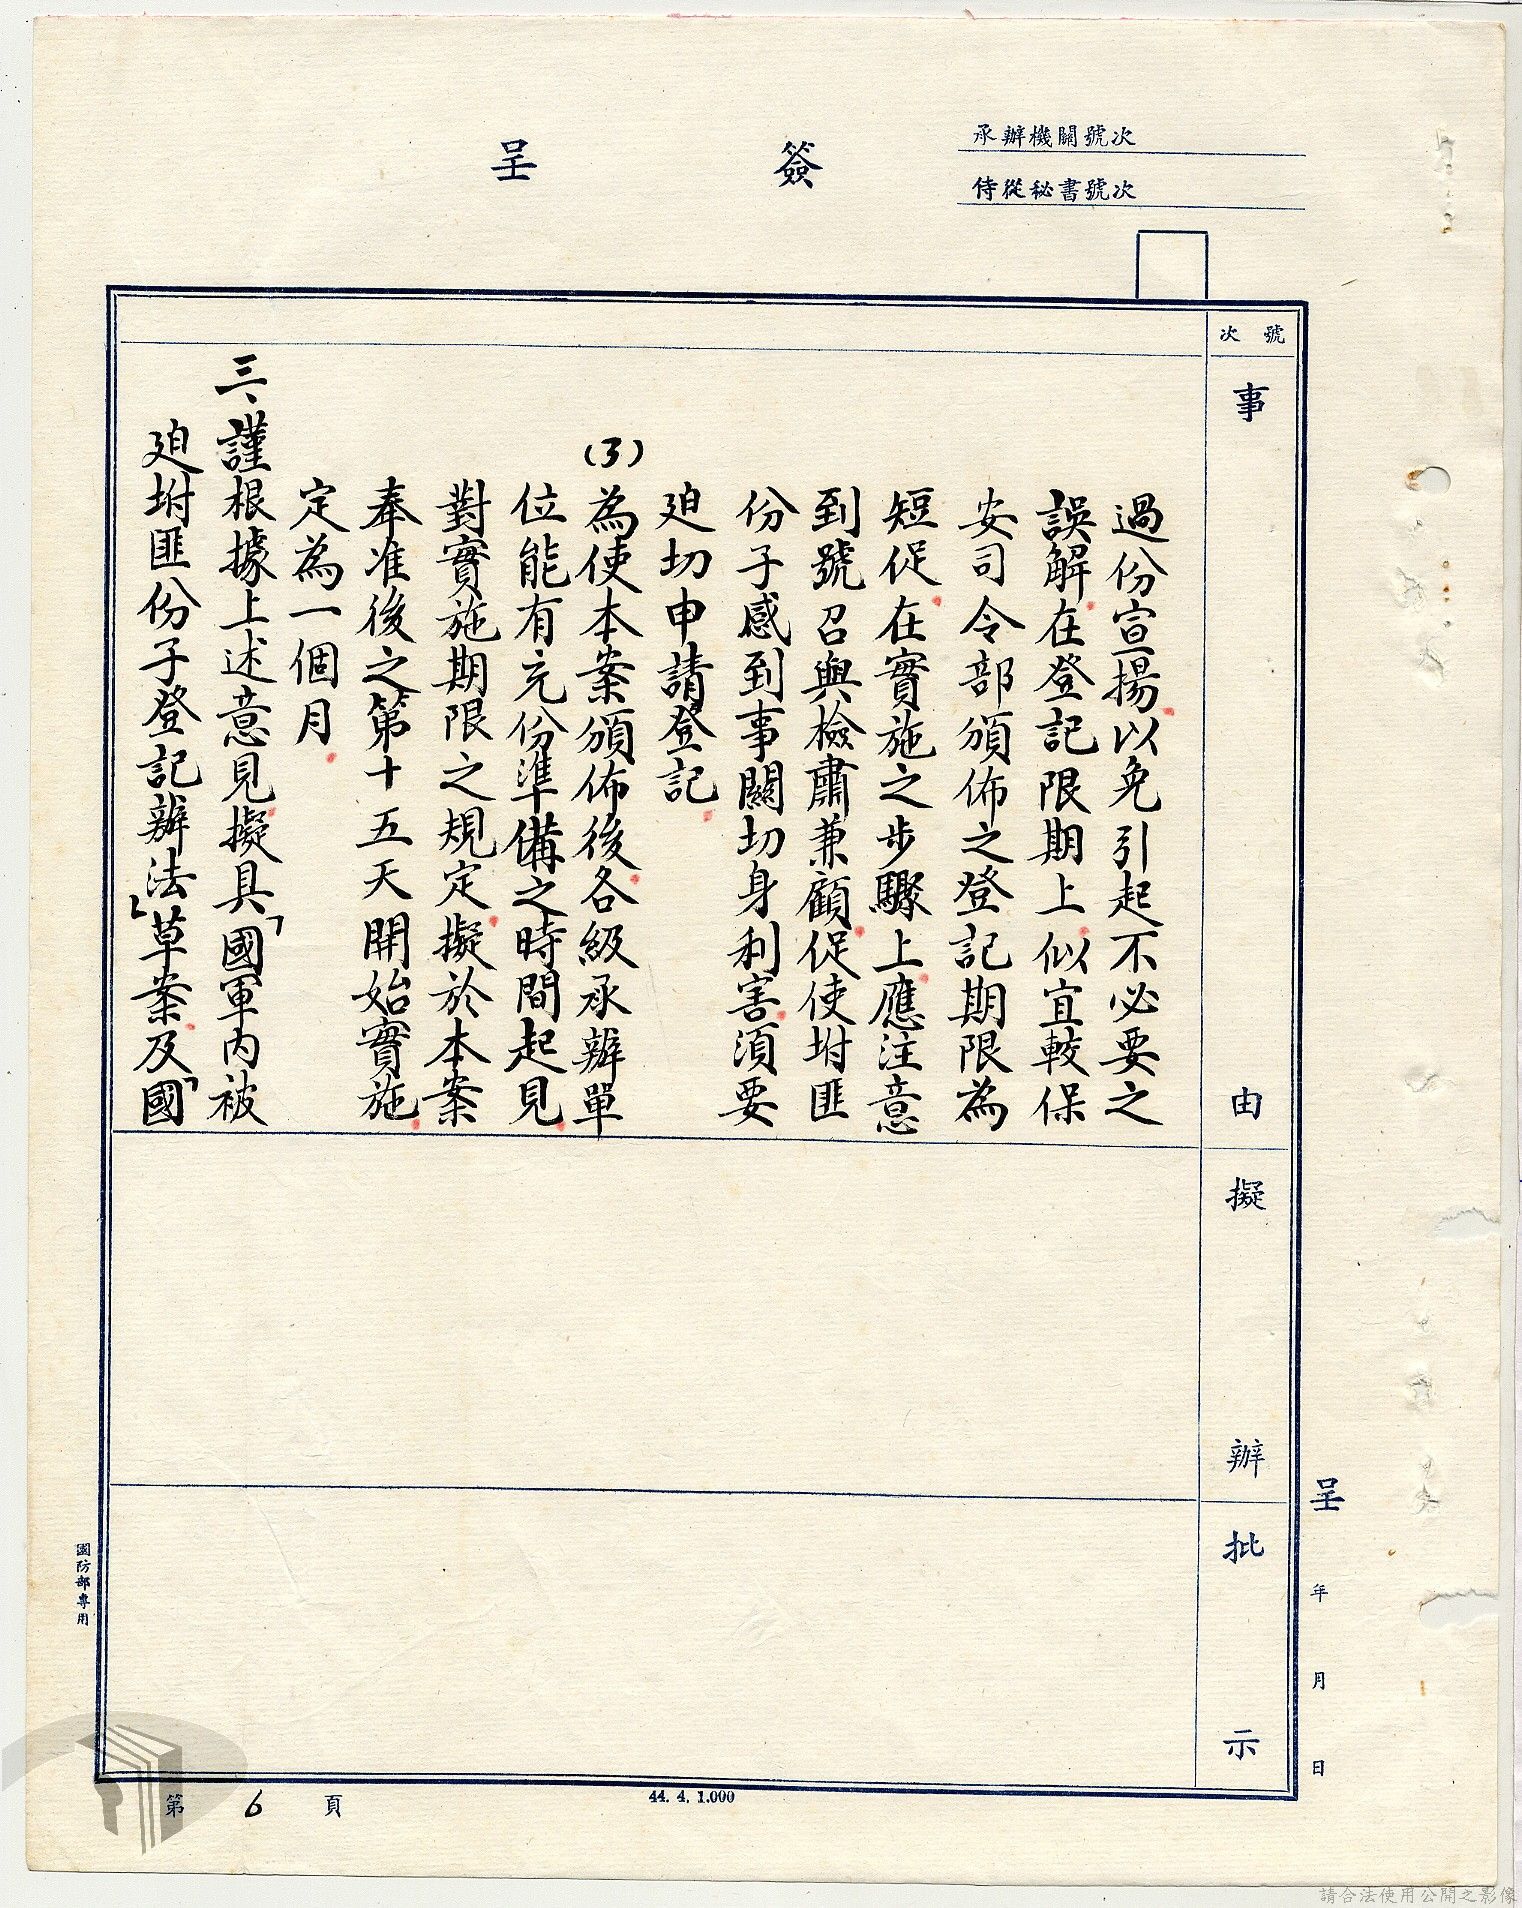 承辦機關號次
侍從秘書號次
簽呈
號次
事由
擬辦
批示
過份宣揚以免引起不必要之
誤解在登記限期上似宜較保
安司令部頒佈之登記期限為
短促在實施之步驟上應注意
到號召與檢肅兼顧促使坿匪
份子感到事關切身利害須要
廹切申請登記
(3)為使本案頒佈後各級承辦單
位能有充份準備之時間起見
對實施期限之規定擬於本案
奉准後之第十五天開始實施
定為一個月
三、謹根據上述意見擬具「國軍內被
廹坿匪份子登記辦法」草案及「國
呈 年 月 日
國防部專用
第6頁
44. 4. 1.000
請合法使用公開之影像